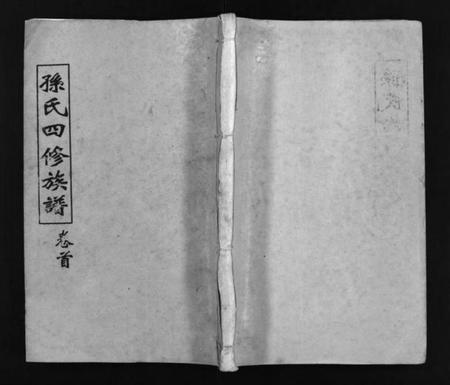 孫氏四修族譜
卷首